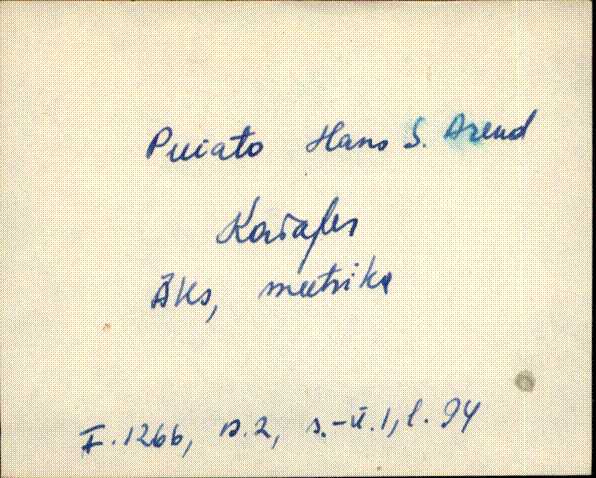 Puiato Hans S. Arend
Äks, meetrika
F. 1266, n. 2, s.-ü. 1, l. 94